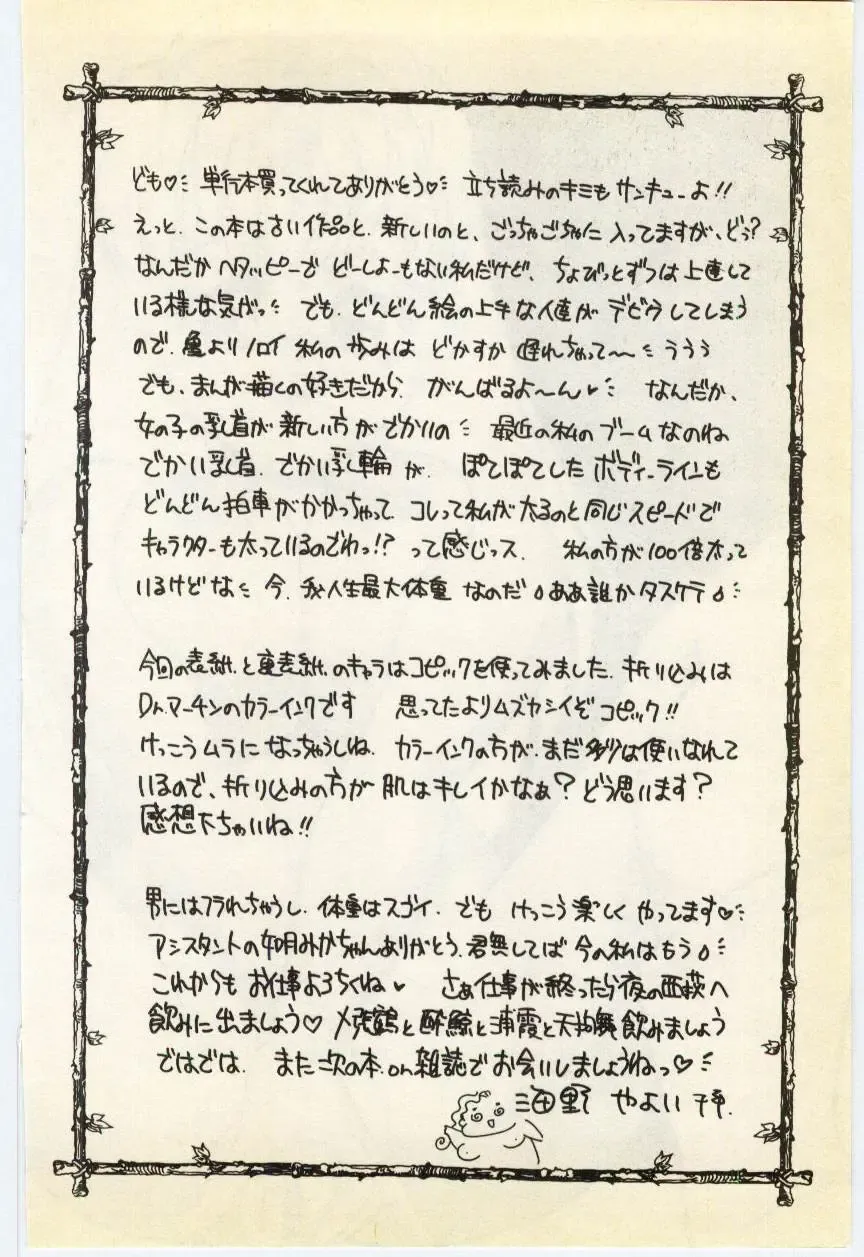 ども♡ 単行本買ってくれてありがとう♡ 立ち読みのキミもサンキューよ!!
えっと、この本は古い作品と、新しいのと、ごっちゃごちゃに入ってますが、どぅ?
なんだかヘタッピーでどーしよーもない私だけど、ちょびっとずつは上達して
いる様な気がっ でも、どんどん絵の上手な人達がデビウしてしまう
ので、亀よりノロイ私の歩みはどかすか遅れちゃって〜 ううぅ
でも、まんが描くの好きだから、がんばるよ〜ん♥ なんだか、
女の子の乳首が新しい方がでかいの 最近の私のブームなのね
でかい乳首、でかい乳輪が、ぽてぽてしたボディーラインも
どんどん拍車がかかっちゃって、コレって私が太るのと同じスピードで
キャラクターも太っているのでわっ!?って感じっス。 私の方が100倍太って
いるけどな 今、我人生最大体重なのだ ああ誰かタスケテ
今回の表紙と裏表紙のキャラはコピックを使ってみました。折り込みは
Dr.マーチンのカラーインクです 思ってたよりムズカシイぞコピック!!
けっこうムラになっちゃうしね、カラーインクの方が、まだ多少は使いなれて
いるので、折り込みの方が肌はキレイかなぁ?どう思います?
感想下ちゃいね!!
男にはフラれちゃうし、体重はスゴイ、でもけっこう楽しくやってます♡
アシスタントの如月みかちゃんありがとう、君無しでは今の私はもう
これからもお仕事よろちくね♥ さぁ仕事が終ったら今夜の西萩へ
飲みに出ましょう♡ 〆張鶴と酔鯨と浦霞と天狗舞飲みましょう
ではでは、また次の本、on雑誌でお会いしましょうねっ♡
海野やよい 拝.